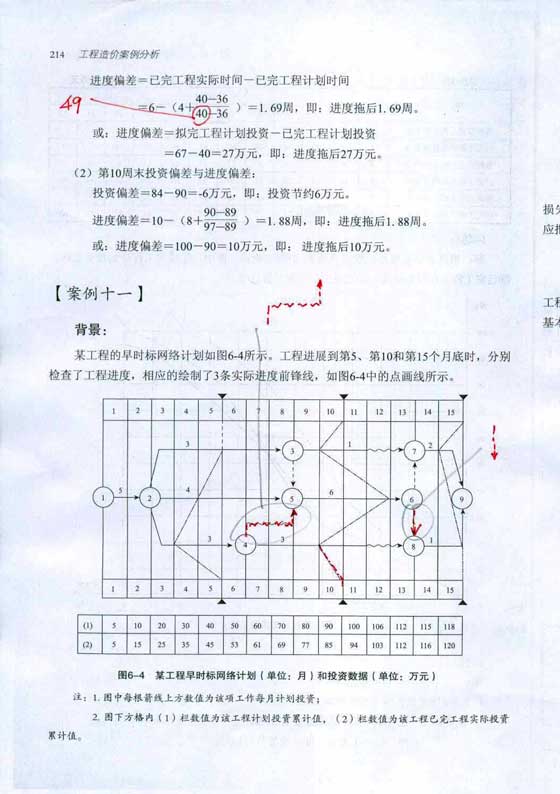 214 工程造价案例分析
进度偏差=已完工程实际时间-已完工程计划时间
49
=6-(4+40-36/40-36)=1.69周，即：进度拖后1.69周。
或：进度偏差=拟完工程计划投资-已完工程计划投资
=67-40=27万元，即：进度拖后27万元。
(2)第10周末投资偏差与进度偏差:
投资偏差=84-90=-6万元，即：投资节约6万元。
进度偏差=10-(8+90-89/97-89)=1.88周，即：进度拖后1.88周。
或：进度偏差=100-90=10万元，即： 进度拖后10万元。
损
应
【案例十一】
工
基本
背景：
某工程的早时标网络计划如图6-4所示。工程进展到第5、第10和第15个月底时，分别
检查了工程进度，相应的绘制了3条实际进度前锋线，如图6-4中的点画线所示。
1 2 3 4 5 6 7 8 9 10 11 12 13 14 15
3 3 1 7 2
1 5 2 4 5 6 6 9
3 4 3 8 1
1 2 3 4 5 6 7 8 9 10 11 12 13 14 15
(1) 5 10 20 30 40 50 60 70 80 90 100 106 112 115 118
(2) 5 15 25 35 45 53 61 69 77 85 94 103 112 116 120
图6-4 某工程早时标网络计划(单位：月)和投资数据(单位：万元)
注：1. 图中每根箭线上方数值为该项工作每月计划投资；
2. 图下方格内（1）栏数值为该工程计划投资累计值，（2）栏数值为该工程已完工程实际投资
累计值。